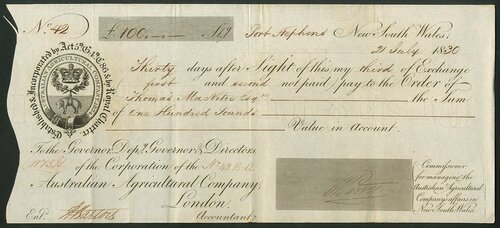 No. 42 £100,— No. 9 Port Stephens New South Wales,
21 July 1830
Thirty days after Sight of this my third of Exchange
first and second not paid pay to the Order of
Thomas Esq. the Sum
of One Hundred Pounds
Value in Account.
To the Governor, Depy. Governor & Directors
of the Corporation of the
Australian Agricultural Company,
London.
Entd. Accountant
Commissioner
for managing the
Australian Agricultural
Company's affairs in
New South Wales
Established & Incorporated by Act 5th G. 4th C. 86, & by Royal Charter
AUSTRALIAN AGRICULTURAL COMPANY